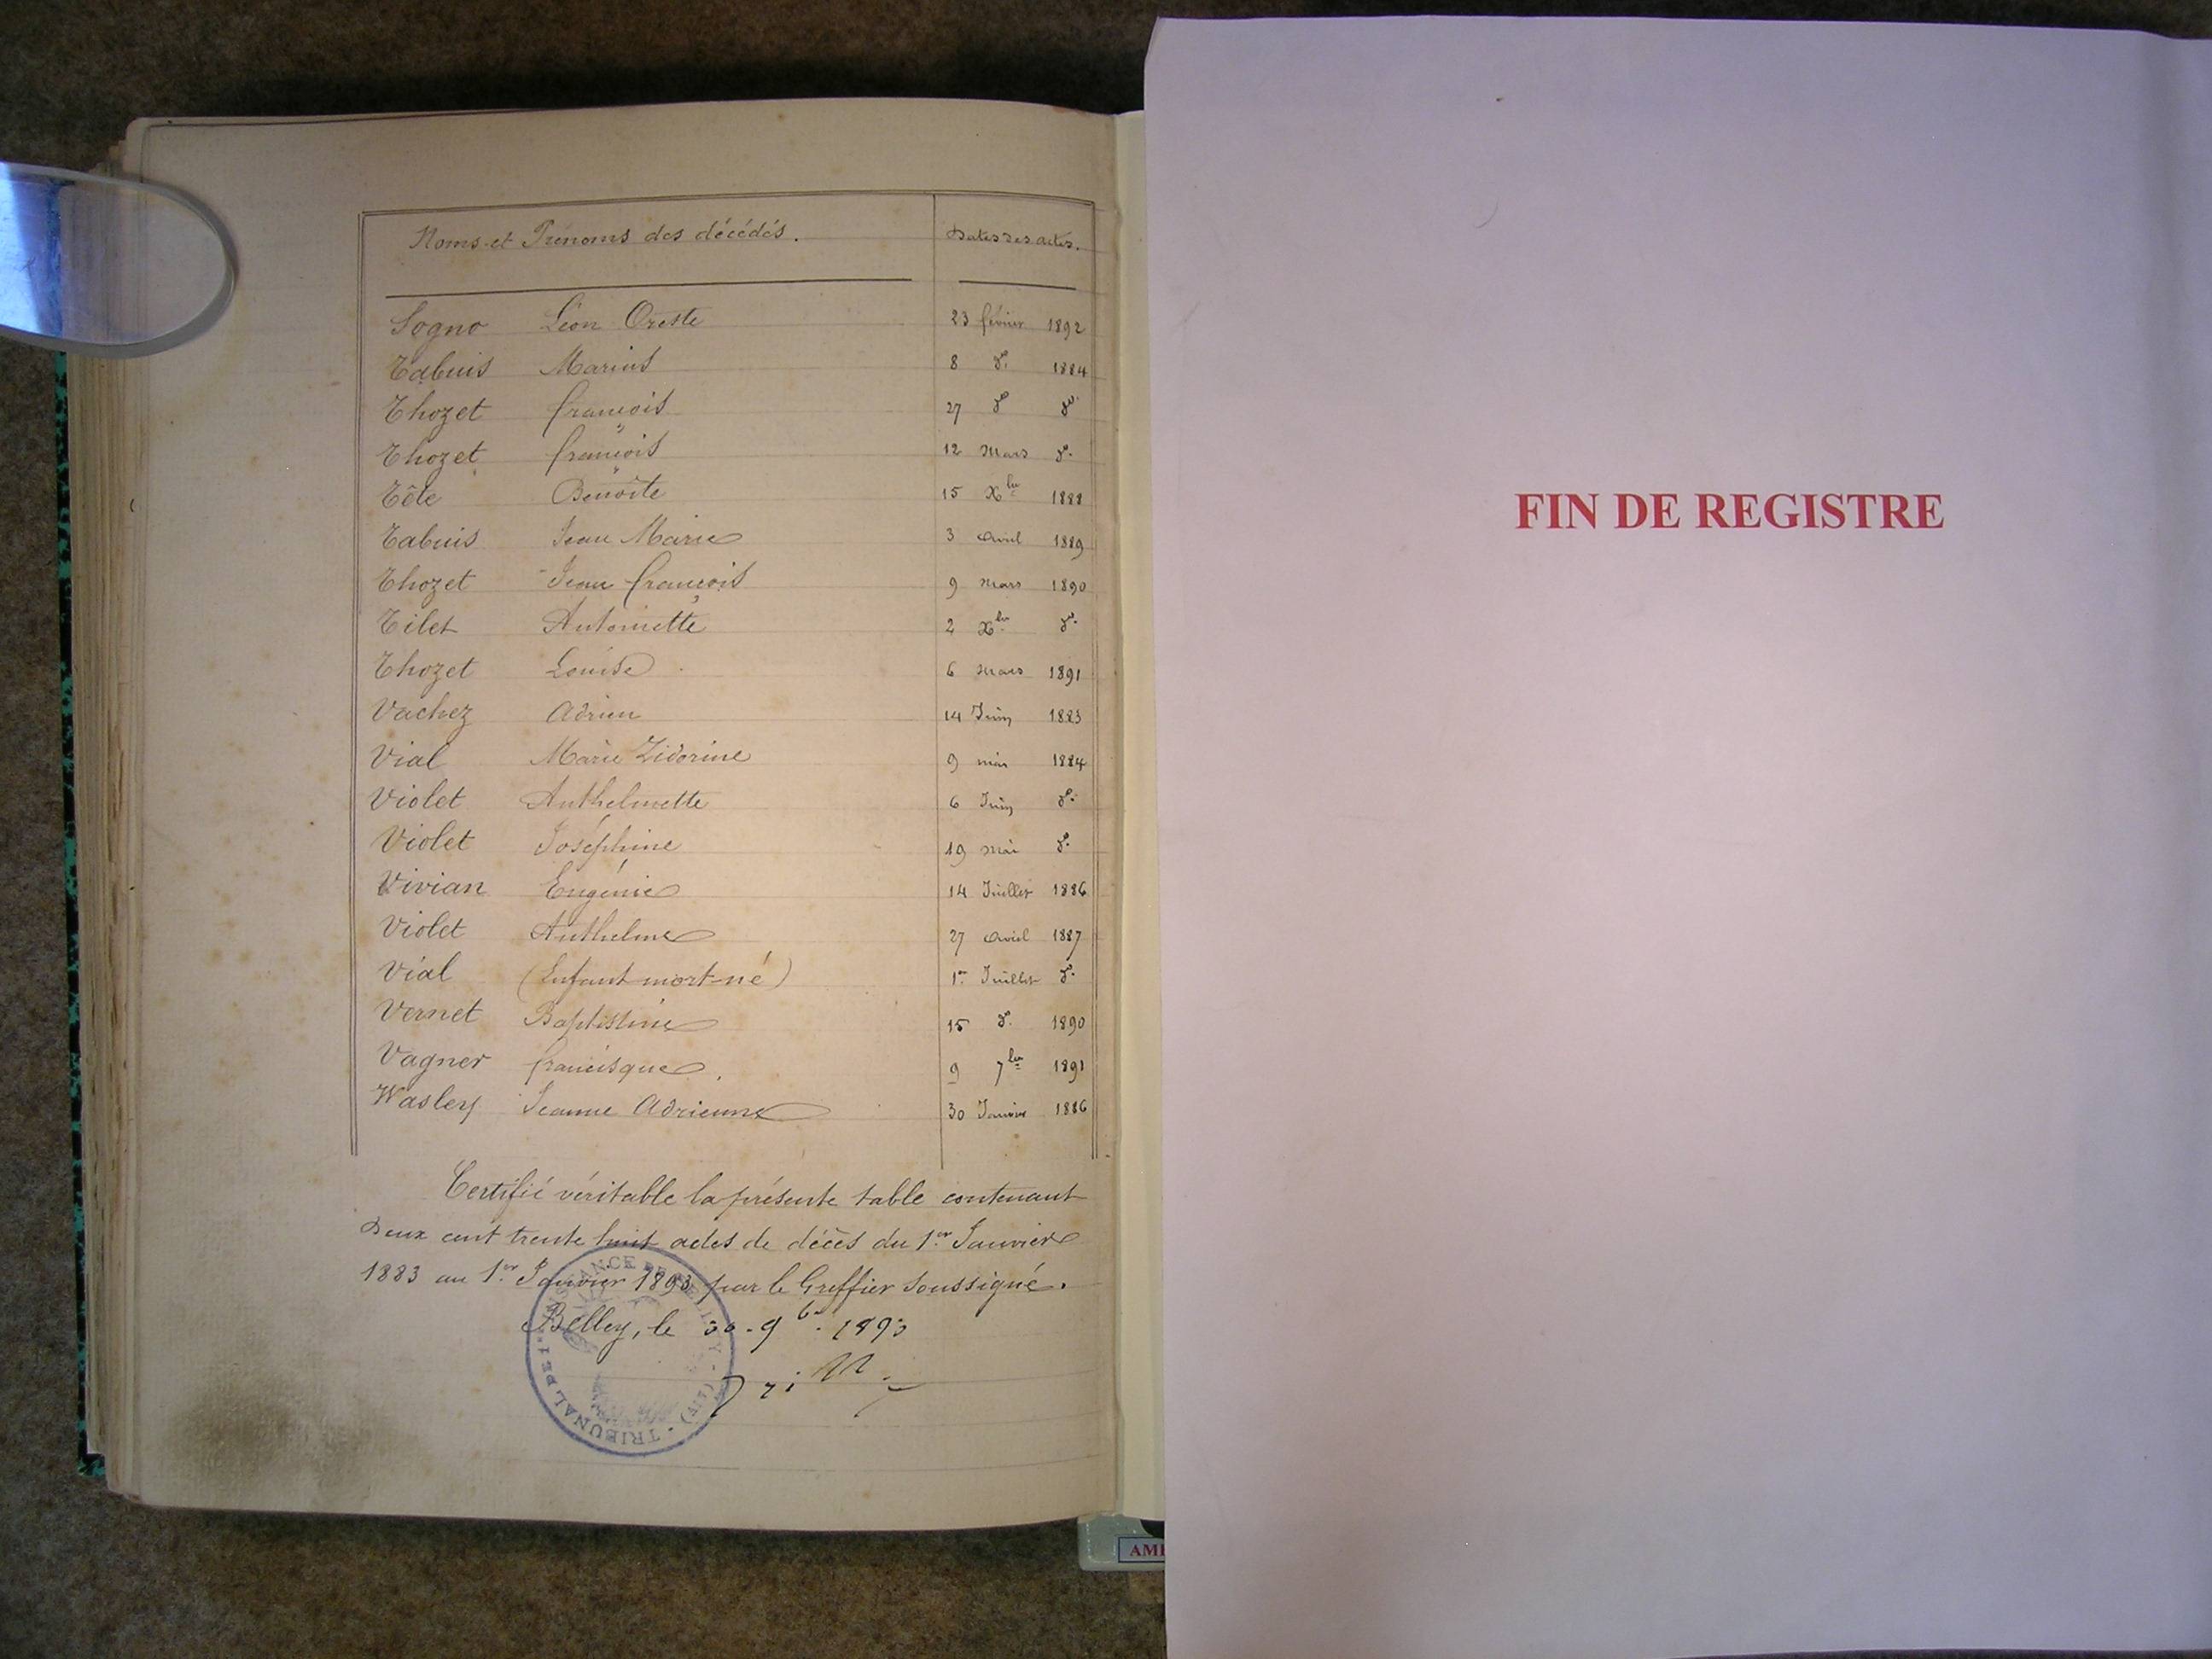 Noms et Prénoms des décédés. Dates des actes.
Sogno Léon Oreste 23 février 1892
Tabuis Marius 8 d° 1884
Thozet françois 27 d° d°
Thozet françois 12 Mars d°
Tête Benoîte 15 Xbre 1888
Tabuis Jean Marie 3 avril 1889
Thozet Jean françois 9 mars 1890
Tilet Antoinette 2 Xbre d°
Thozet Louise 6 mars 1891
Vachez Adrien 14 Juin 1883
Vial Marie Zidorine 9 mai 1884
Violet Anthelmette 6 Juin d°
Violet Joséphine 19 mai d°
Vivian Eugénie 14 Juillet 1886
Violet Anthelme 27 avril 1887
Vial (Enfant mort-né) 1er Juillet d°
Vernet Baptistine 15 d° 1890
Vagner francisque. 9 7bre 1891
Wasley Jeanne Adrienne 30 Janvier 1886
Certifié véritable la présente table contenant
deux cent trente huit actes de décès du 1er Janvier
1883 au 1er Janvier 1893 par le Greffier soussigné.
Belley, le 30 - 9bre 1893
TRIBUNAL DE 1ère INSTANCE DE BELLEY - (AIN)
FIN DE REGISTRE
AM